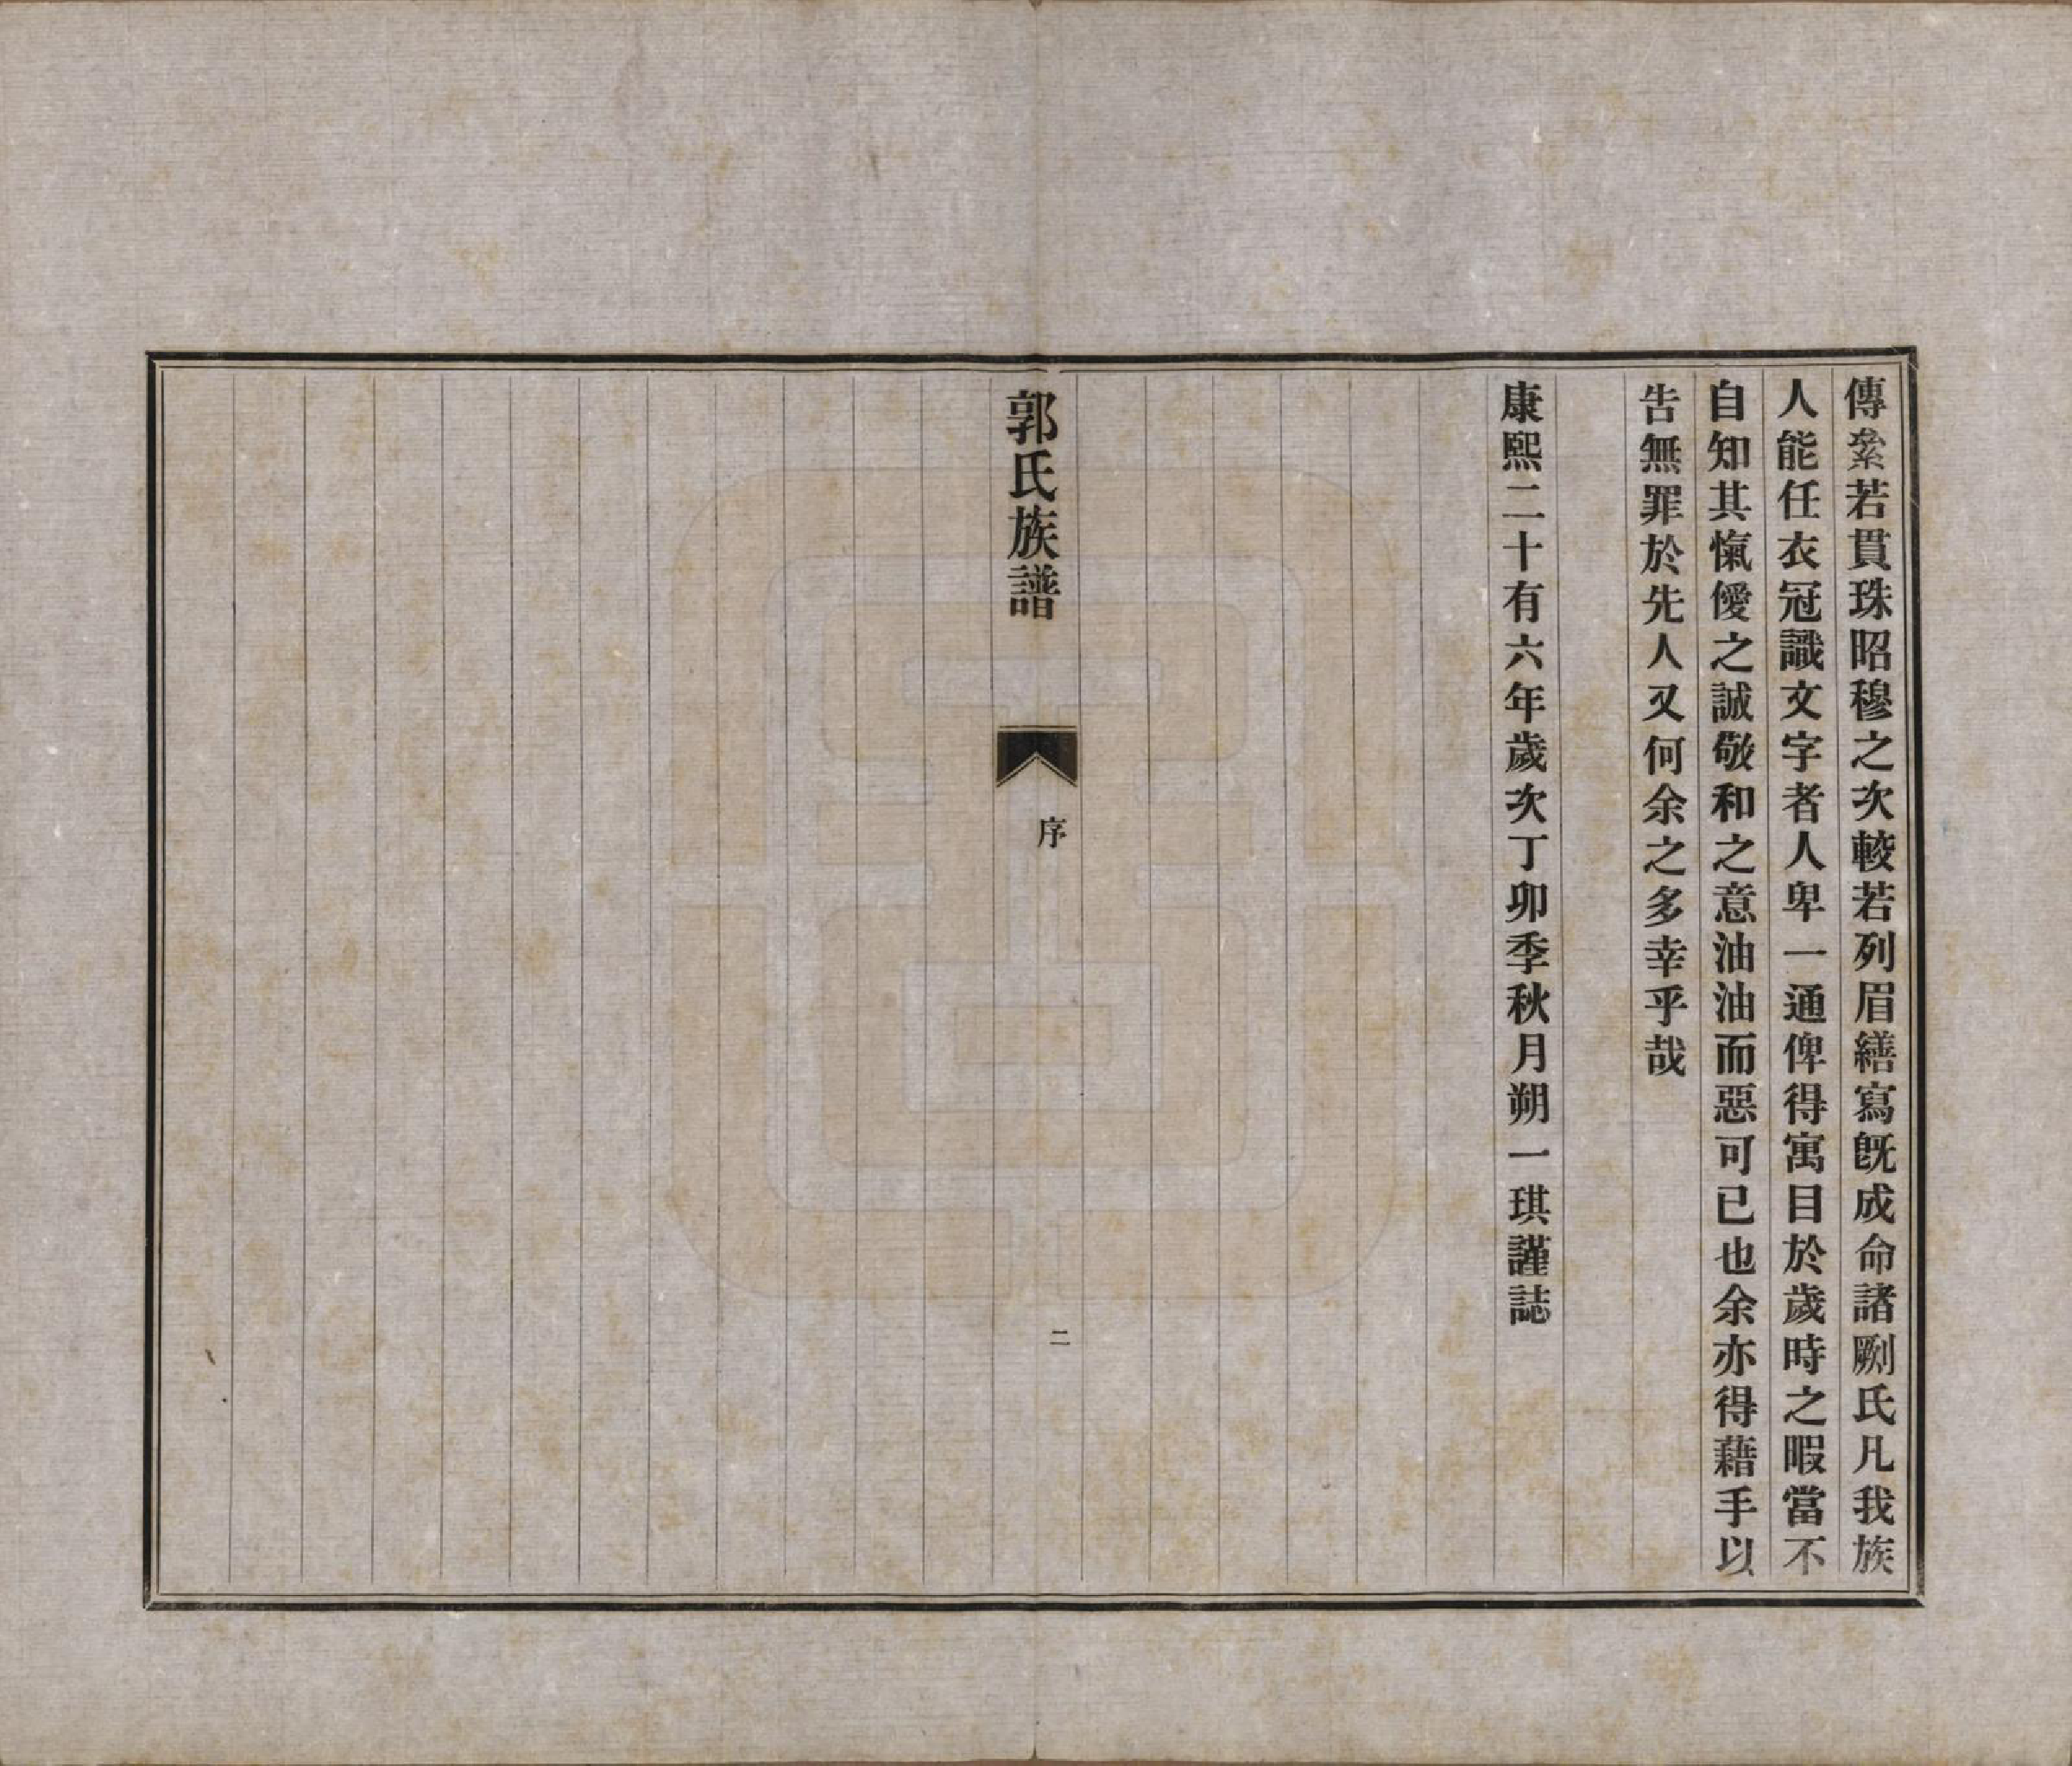 傳絫若貫珠昭穆之次較若列眉繕寫旣成命諸劂氏凡我族
人能任衣冠識文字者人卑一通俾得寓目於歲時之暇當不
自知其愾僾之誠敬和之意油油而惡可已也余亦得藉手以
告無罪於先人又何余之多幸乎哉
康熙二十有六年歲次丁卯季秋月朔一琪謹誌
郭氏族譜
序
二